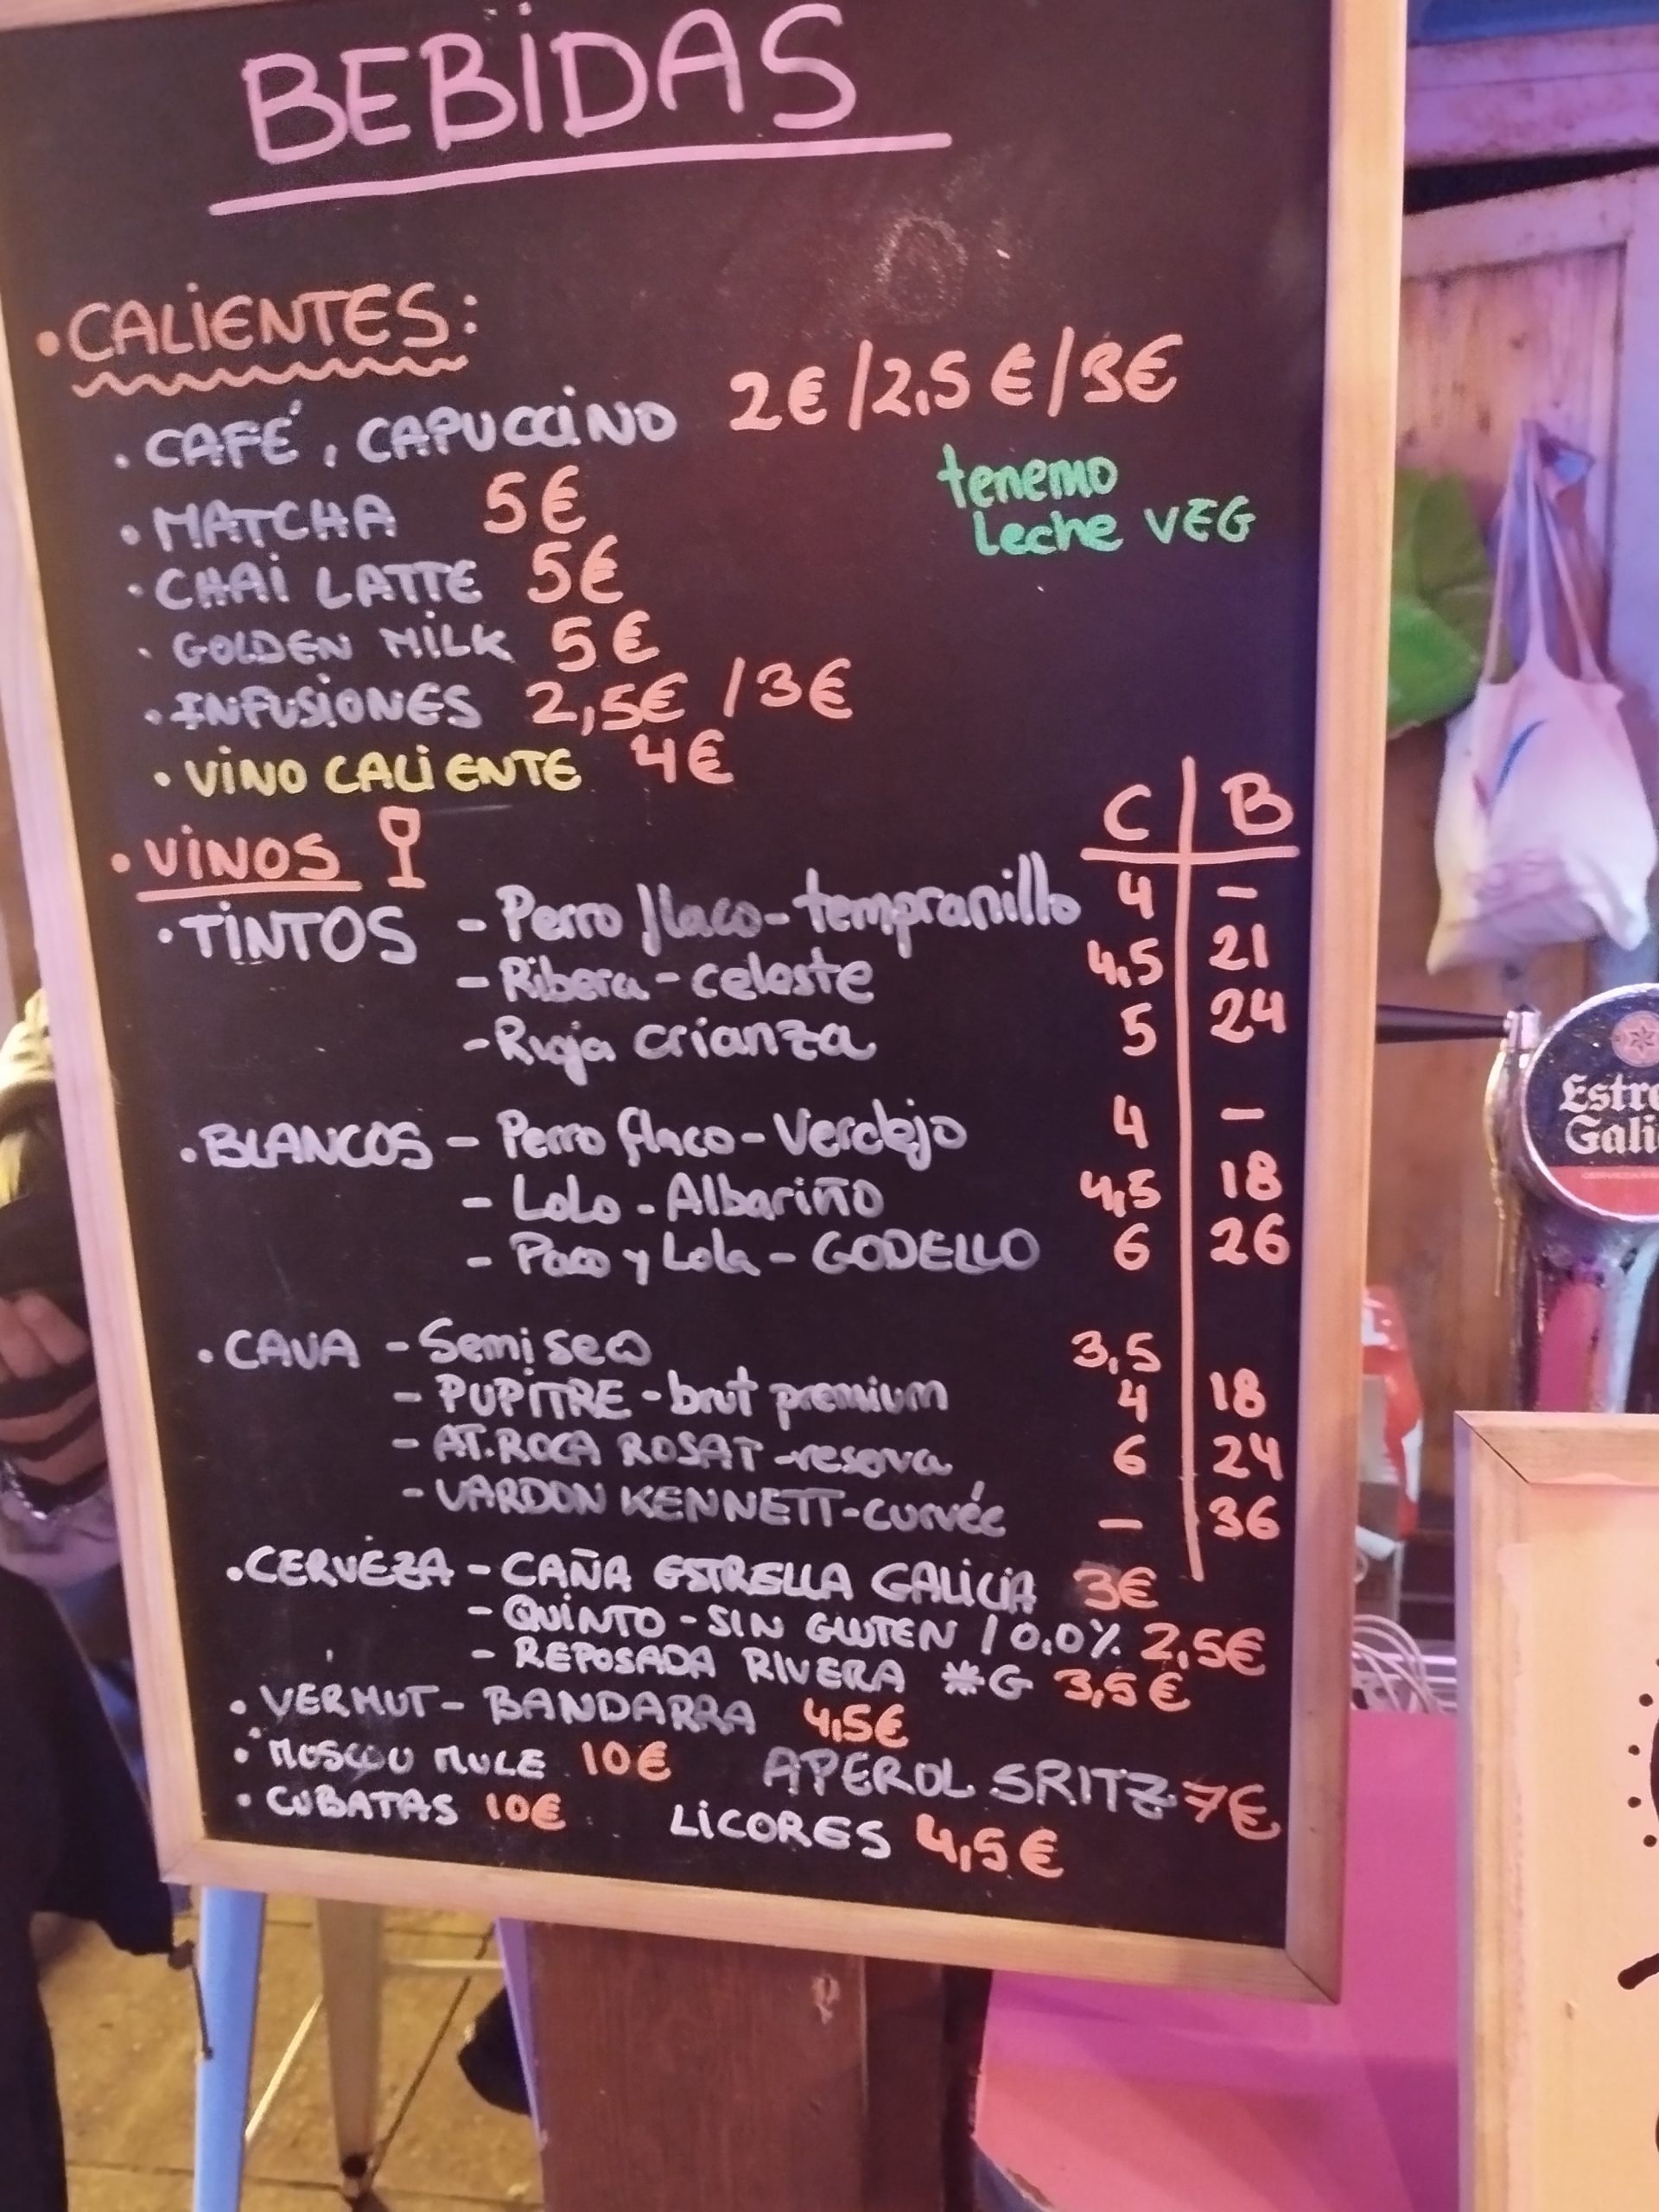 BEBIDAS
• CALIENTES:
. CAFÉ, CAPUCCINO 2€/2,5€/3€
tenemo
Leche VEG
. MATCHA 5€
. CHAI LATTE 5€
. GOLDEN MILK 5€
. INFUSIONES 2,5€ / 3€
. VINO CALIENTE 4€
C | B
• VINOS
. TINTOS - Perro flaco - tempranillo 4 | -
- Ribera - celeste 4,5 | 21
- Rioja crianza 5 | 24
. BLANCOS - Perro flaco - Verdejo 4 | -
- Lolo - Albariño 4,5 | 18
- Paco y Lola - GODELLO 6 | 26
. CAVA - Semi seco 3,5
- PUPITRE - brut premium 4 | 18
- AT. ROCA ROSAT - reserva 6 | 24
- VARDON KENNETT - curvée - | 36
. CERVEZA - CAÑA ESTRELLA GALICIA 3€
- QUINTO - SIN GLUTEN / 0.0% 2,5€
- REPOSADA RIVERA *G 3,5€
. VERMUT - BANDARRA 4,5€
. MOSCOU MULE 10€ APEROL SRITZ 7€
. CUBATAS 10€ LICORES 4,5€
Estre
Gali